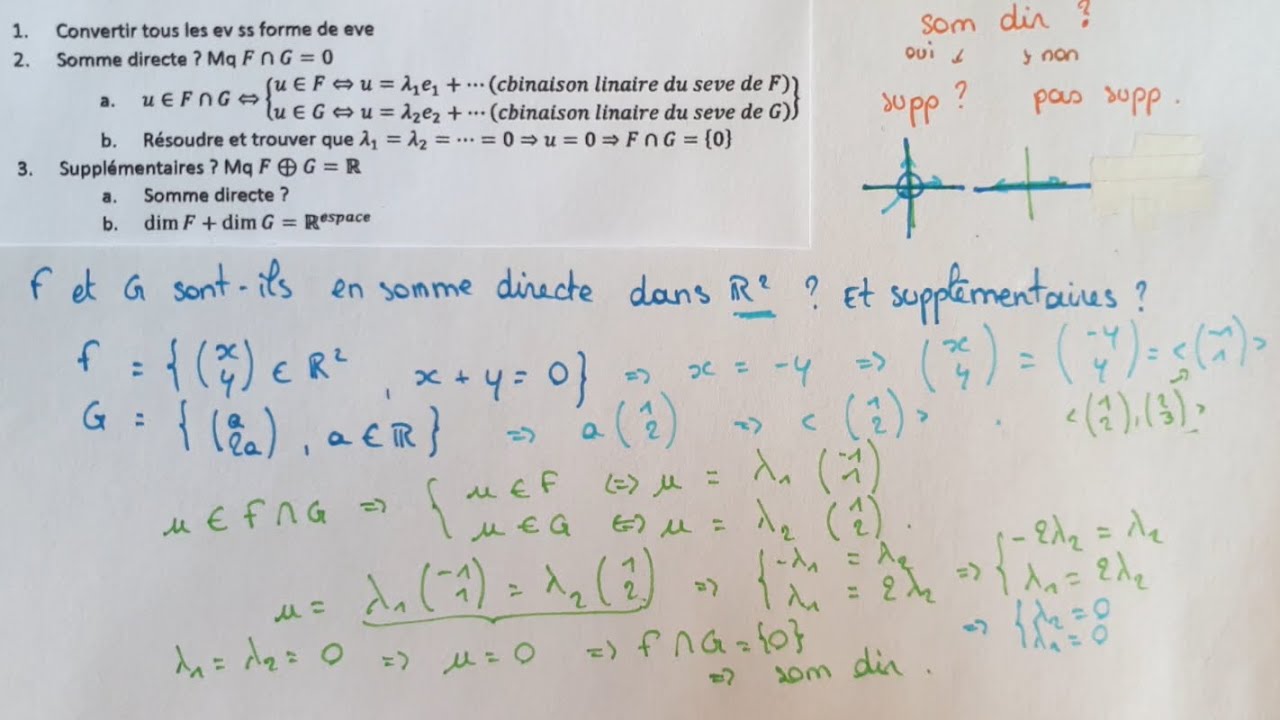 1. Convertir tous les ev ss forme de eve
2. Somme directe ? Mq F ∩ G = 0
a. u ∈ F ∩ G ⇔ {u ∈ F ⇔ u = λ₁e₁ + ⋯ (cbinaison linaire du seve de F)
u ∈ G ⇔ u = λ₂e₂ + ⋯ (cbinaison linaire du seve de G)}
b. Résoudre et trouver que λ₁ = λ₂ = ⋯ = 0 ⇒ u = 0 ⇒ F ∩ G = {0}
3. Supplémentaires ? Mq F ⊕ G = ℝ
a. Somme directe ?
b. dim F + dim G = ℝ^espace
som dir ?
oui ↓ ↘ non
supp ? pas supp .
F et G sont-ils en somme directe dans ℝ² ? Et supplémentaires ?
F = {(x y) ∈ ℝ² , x + y = 0} => x = -y => (x y) = (-y y) = <(-1 1)>
G = {(a 2a) , a ∈ ℝ} => a (1 2) => < (1 2) > . <(1 2), (2 3)>
u ∈ F ∩ G => { u ∈ F <=> u = λ₁ (-1 1)
u ∈ G <=> u = λ₂ (1 2) .
u = λ₁ (-1 1) = λ₂ (1 2) => { -λ₁ = λ₂
λ₁ = 2λ₂
=> { -2λ₂ = λ₂
λ₁ = 2λ₂
=> { λ₂ = 0
λ₁ = 0
λ₁ = λ₂ = 0 => u = 0 => F ∩ G = {0}
=> som dir .